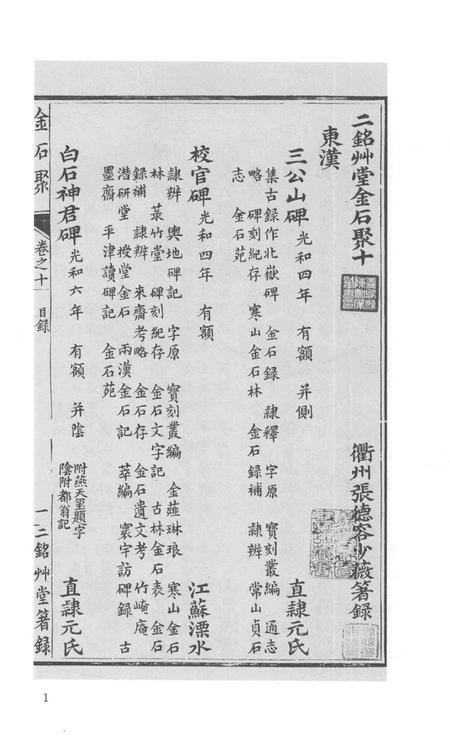 二銘艸堂金石聚十 衢州張德容少薇箸錄
東漢
三公山碑 光和四年 有額 并側 直隸元氏
集古録作北嶽碑 金石錄 隸釋 字原 寶刻叢編 通志
略 碑刻紀存 寒山金石林 金石錄補 隸辨 常山貞石
志 金石苑
校官碑 光和四年 有額 江蘇溧水
隸辨 輿地碑記 字原 寶刻叢編 金薤琳琅 寒山金石
林 菉竹堂 碑刻紀存 金石文字記 古林金石表 金石
録補 隸辨 來齋考略 金石存 金石遺文考 竹崦庵
潛研堂 授堂金石 兩漢金石記 萃編 寰宇訪碑錄 古
墨齋 平津讀碑記 金石苑
白石神君碑 光和六年 有額 并陰 附燕天璽題字 直隸元氏
陰附都翁記
金石聚 卷之十 目録 一 二銘艸堂箸録
1